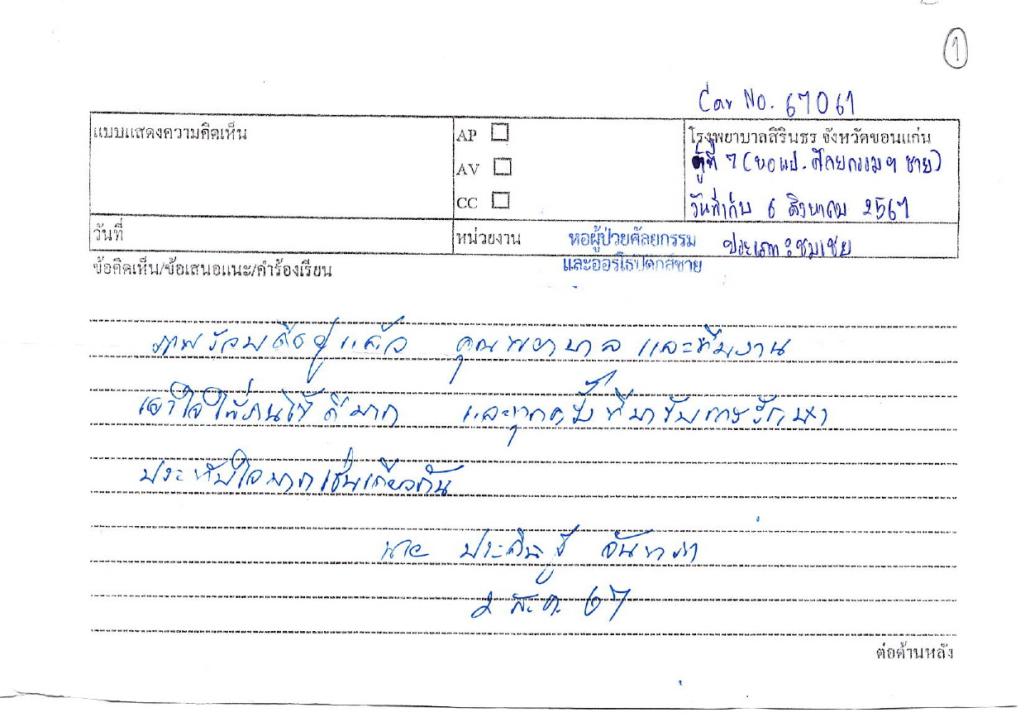 1
Car No. 67061
แบบแสดงความคิดเห็น
AP
AV
CC
โรงพยาบาลสิรินธร จังหวัดขอนแก่น
ตู้ที่ 7 (หอผป. ศัลยกรรมฯ ชาย)
วันที่เก็บ 6 สิงหาคม 2567
วันที่
หน่วยงาน หอผู้ป่วยศัลยกรรม
และออร์โธปิดิกส์ชาย
ประเภท : ชมเชย
ข้อคิดเห็น/ข้อเสนอแนะ/คำร้องเรียน
ภาพรวมดีอยู่แล้ว คุณพยาบาล และทีมงาน
เอาใจใส่คนไข้ดีมาก และทุกครั้งที่มารับการรักษา
ประทับใจมากเช่นเดียวกัน
นาย
2 ส.ค. 67
ต่อด้านหลัง